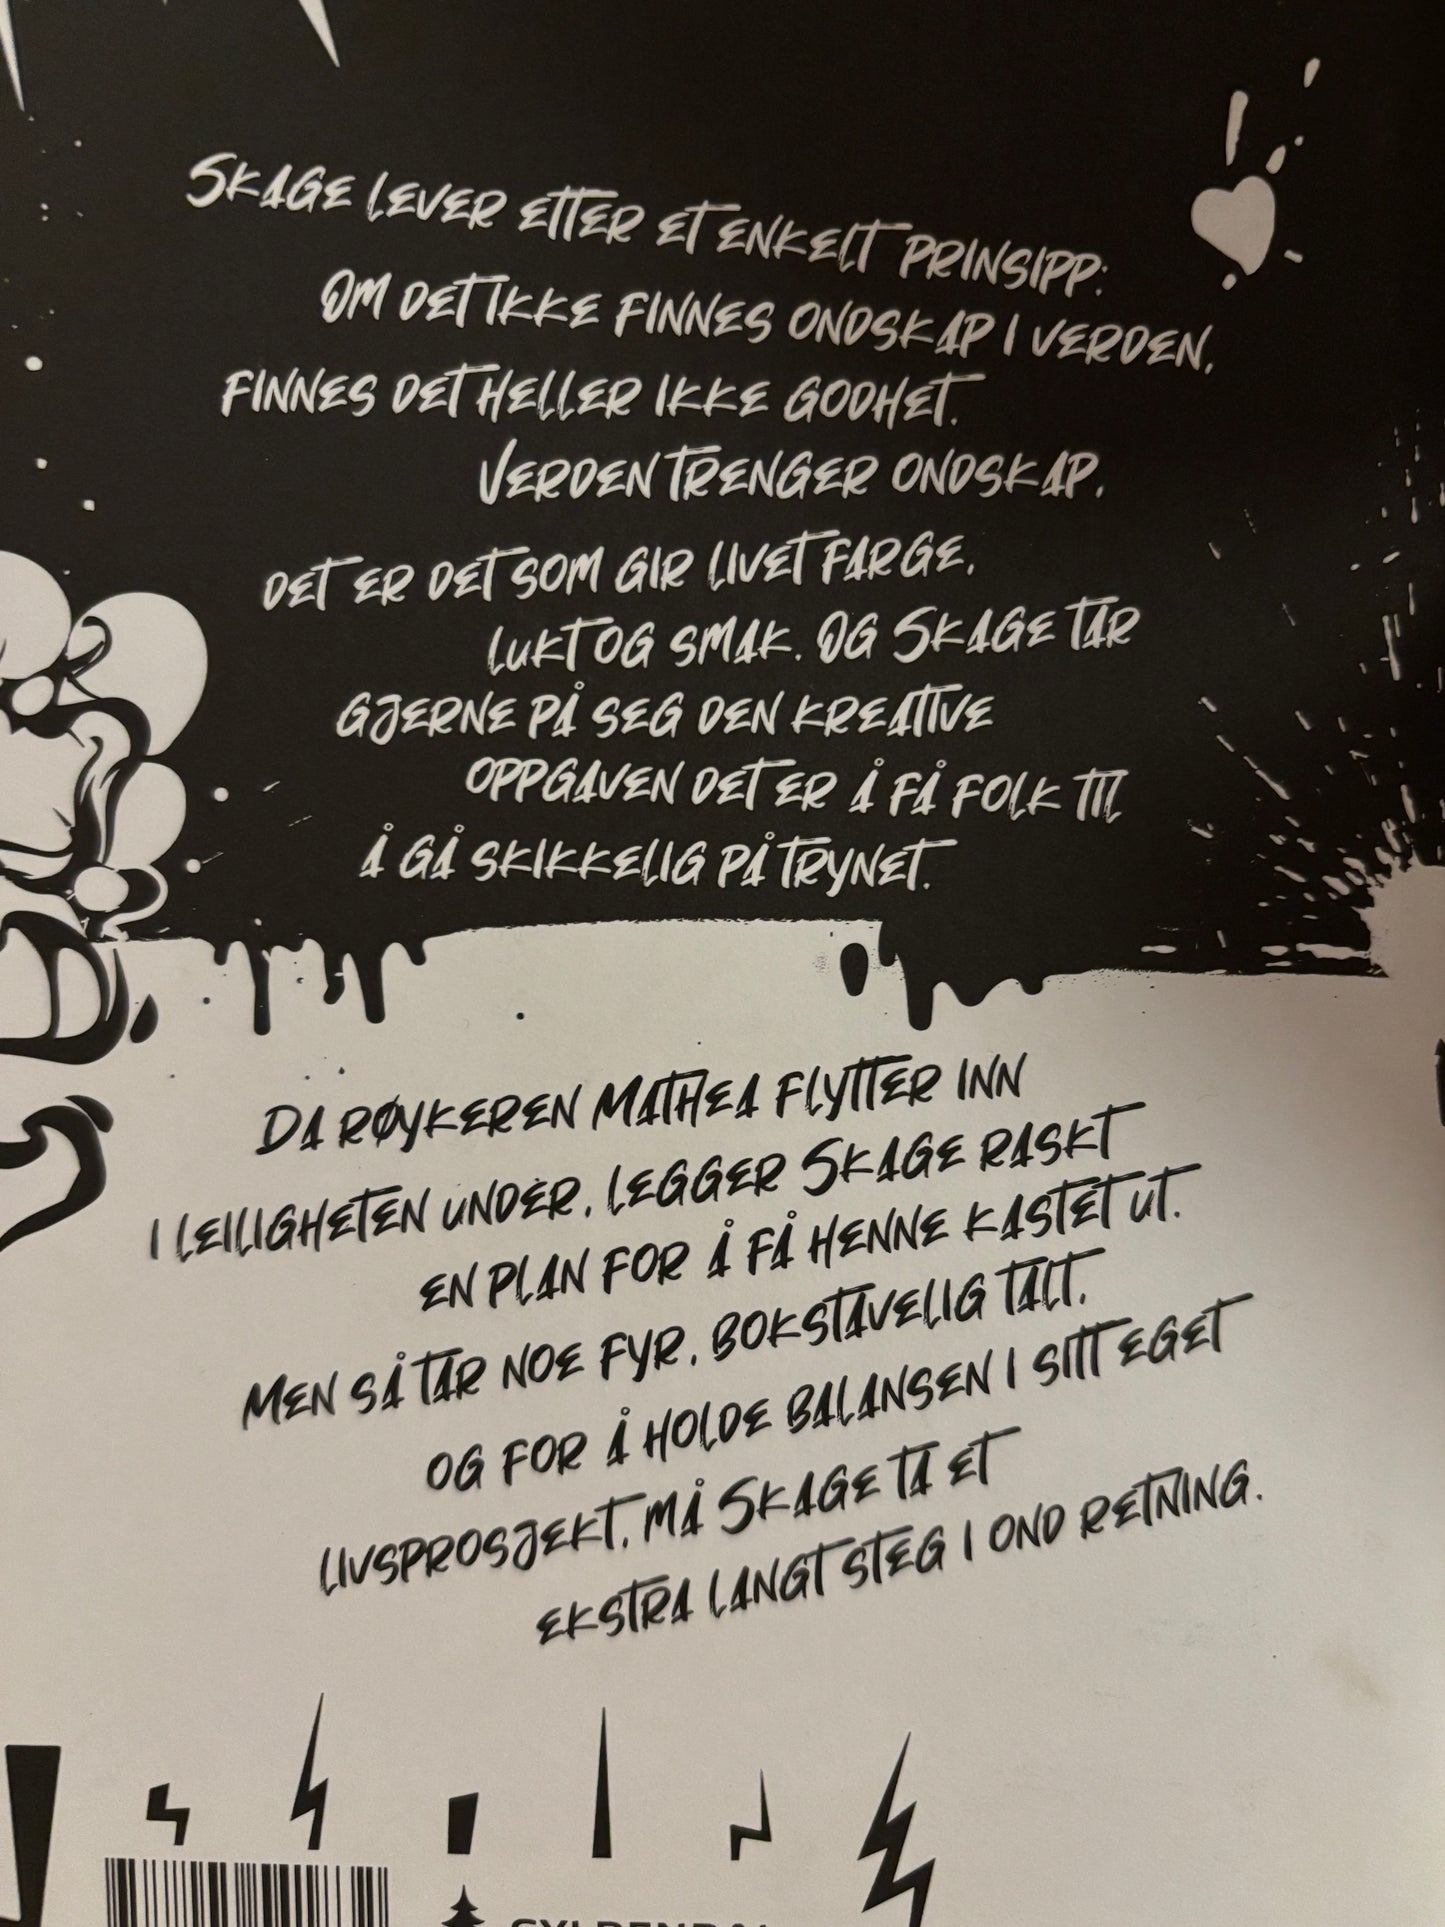 SKAGE LEVER ETTER ET ENKELT PRINSIPP:
OM DET IKKE FINNES ONDSKAP I VERDEN,
FINNES DET HELLER IKKE GODHET.
VERDEN TRENGER ONDSKAP,
DET ER DET SOM GIR LIVET FARGE,
LUKT OG SMAK. OG SKAGE TAR
GJERNE PÅ SEG DEN KREATIVE
OPPGAVEN DET ER Å FÅ FOLK TIL
Å GÅ SKIKKELIG PÅ TRYNET.
DA RØYKEREN MATHEA FLYTTER INN
I LEILIGHETEN UNDER, LEGGER SKAGE RASKT
EN PLAN FOR Å FÅ HENNE KASTET UT.
MEN SÅ TAR NOE FYR, BOKSTAVELIG TALT,
OG FOR Å HOLDE BALANSEN I SITT EGET
LIVSPROSJEKT, MÅ SKAGE TA ET
EKSTRA LANGT STEG I OND RETNING.
GYLDENDAL